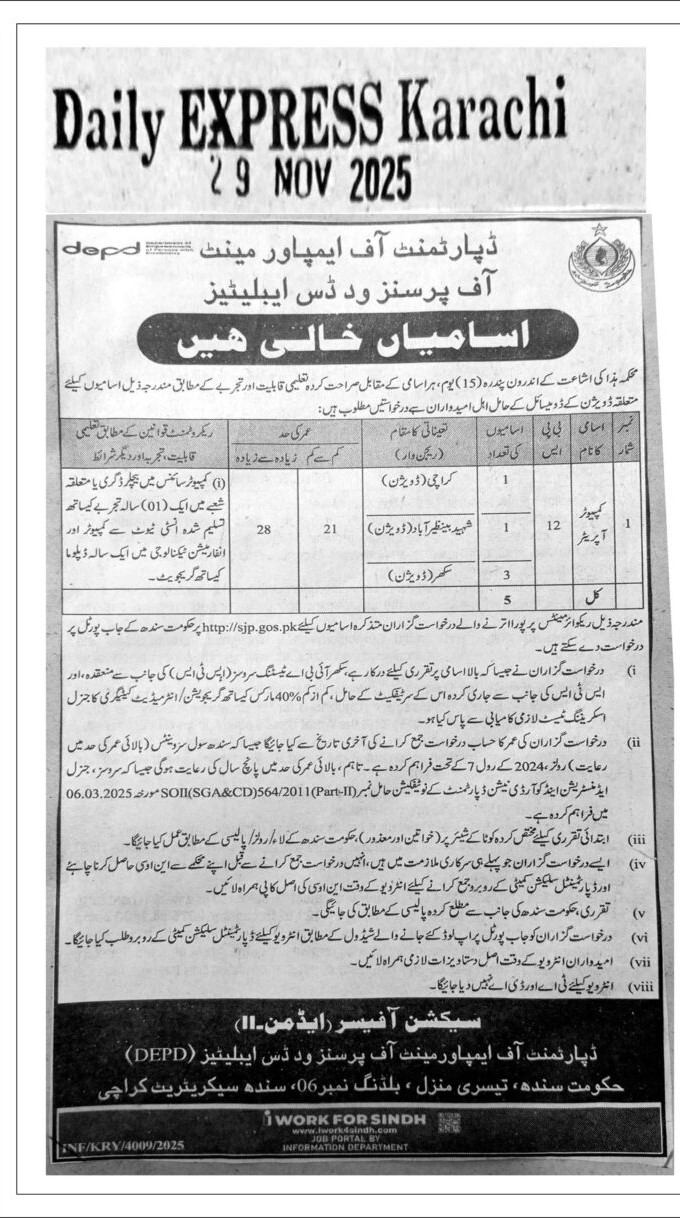 Daily EXPRESS Karachi
29 NOV 2025
depd
Department of Empowerment of Persons with Disabilities
ڈپارٹمنٹ آف ایمپاورمینٹ
آف پرسنز ود ڈس ایبلیٹیز
اسامیاں خالی ہیں
محکمہ ہذا کی اشاعت کے اندرون پندرہ (15) یوم، ہر اسامی کے مقابل صراحت کردہ تعلیمی قابلیت اور تجربے کے مطابق مندرجہ ذیل اسامیوں کیلئے
متعلقہ ڈویژن کے ڈومیسائل کے حامل اہل امیدواران سے درخواستیں مطلوب ہیں:
نمبر شمار
اسامی کا نام
بی پی ایس
اسامیوں کی تعداد
تعیناتی کا مقام (ریجن وار)
عمر کی حد
کم سے کم
زیادہ سے زیادہ
ریکروٹمنٹ قوانین کے مطابق تعلیمی قابلیت، تجربہ اور دیگر شرائط
1
کمپیوٹر آپریٹر
12
1
کراچی (ڈویژن)
1
شہید بینظیر آباد (ڈویژن)
3
سکھر (ڈویژن)
21
28
(i) کمپیوٹر سائنس میں بیچلر ڈگری یا متعلقہ
شعبے میں ایک (01) سالہ تجربے کیساتھ
تسلیم شدہ انسٹی ٹیوٹ سے کمپیوٹر اور
انفارمیشن ٹیکنالوجی میں ایک سالہ ڈپلوما
کیساتھ گریجویٹ۔
کل
5
مندرجہ ذیل ریکوائرمینٹس پر پورا اترنے والے درخواست گزاران متذکرہ اسامیوں کیلئے http://sjp.gos.pk پر حکومت سندھ کے جاب پورٹل پر
درخواست دے سکتے ہیں۔
(i درخواست گزاران نے جیسا کہ بالا اسامی پر تقرری کیلئے درکار ہے، سکھر آئی بی اے ٹیسٹنگ سروسز (ایس ٹی ایس) کی جانب سے منعقدہ، اور
ایس ٹی ایس کی جانب سے جاری کردہ اس کے سرٹیفکیٹ کے حامل، کم از کم %40 مارکس کیساتھ گریجویشن/انٹرمیڈیٹ کیٹیگری کا جنرل
اسکریننگ ٹیسٹ لازمی کامیابی سے پاس کیا ہو۔
(ii درخواست گزاران کی عمر کا حساب درخواست جمع کرانے کی آخری تاریخ سے کیا جائیگا جیسا کہ سندھ سول سرونٹس (بالائی عمر کی حد میں
رعایت) رولز، 2024 کے رول 7 کے تحت فراہم کردہ ہے۔ تاہم، بالائی عمر کی حد میں پانچ سال کی رعایت ہوگی جیسا کہ سروسز، جنرل
ایڈمنسٹریشن اینڈ کوآرڈی نیشن ڈپارٹمنٹ کے نوٹیفکیشن حامل نمبر SOII(SGA&CD)564/2011(Part-II) مورخہ 06.03.2025
میں فراہم کردہ ہے۔
(iii ابتدائی تقرری کیلئے مختص کردہ کوٹا کے شیئر پر (خواتین اور معذور)، حکومت سندھ کے لاء/رولز/پالیسی کے مطابق عمل کیا جائیگا۔
(iv ایسے درخواست گزاران جو پہلے ہی سرکاری ملازمت میں ہیں، انہیں درخواست جمع کرانے سے قبل اپنے محکمے سے این او سی حاصل کرنا چاہئے
اور ڈپارٹمنٹل سلیکشن کمیٹی کے روبرو جمع کرانے کیلئے انٹرویو کے وقت این او سی کی اصل کاپی ہمراہ لائیں۔
(v تقرری، حکومت سندھ کی جانب سے مطلع کردہ پالیسی کے مطابق کی جائیگی۔
(vi درخواست گزاران کو جاب پورٹل پر اپ لوڈ کئے جانے والے شیڈول کے مطابق انٹرویو کیلئے ڈپارٹمنٹل سلیکشن کمیٹی کے روبرو طلب کیا جائیگا۔
(vii امیدواران انٹرویو کے وقت اصل دستاویزات لازمی ہمراہ لائیں۔
(viii انٹرویو کیلئے ٹی اے اور ڈی اے نہیں دیا جائیگا۔
سیکشن آفیسر (ایڈمن-II)
ڈپارٹمنٹ آف ایمپاورمینٹ آف پرسنز ود ڈس ایبلیٹیز (DEPD)
حکومت سندھ، تیسری منزل، بلڈنگ نمبر 06، سندھ سیکریٹریٹ کراچی
i WORK FOR SINDH
www.iwork4sindh.com
JOB PORTAL BY
INFORMATION DEPARTMENT
INF/KRY/4009/2025